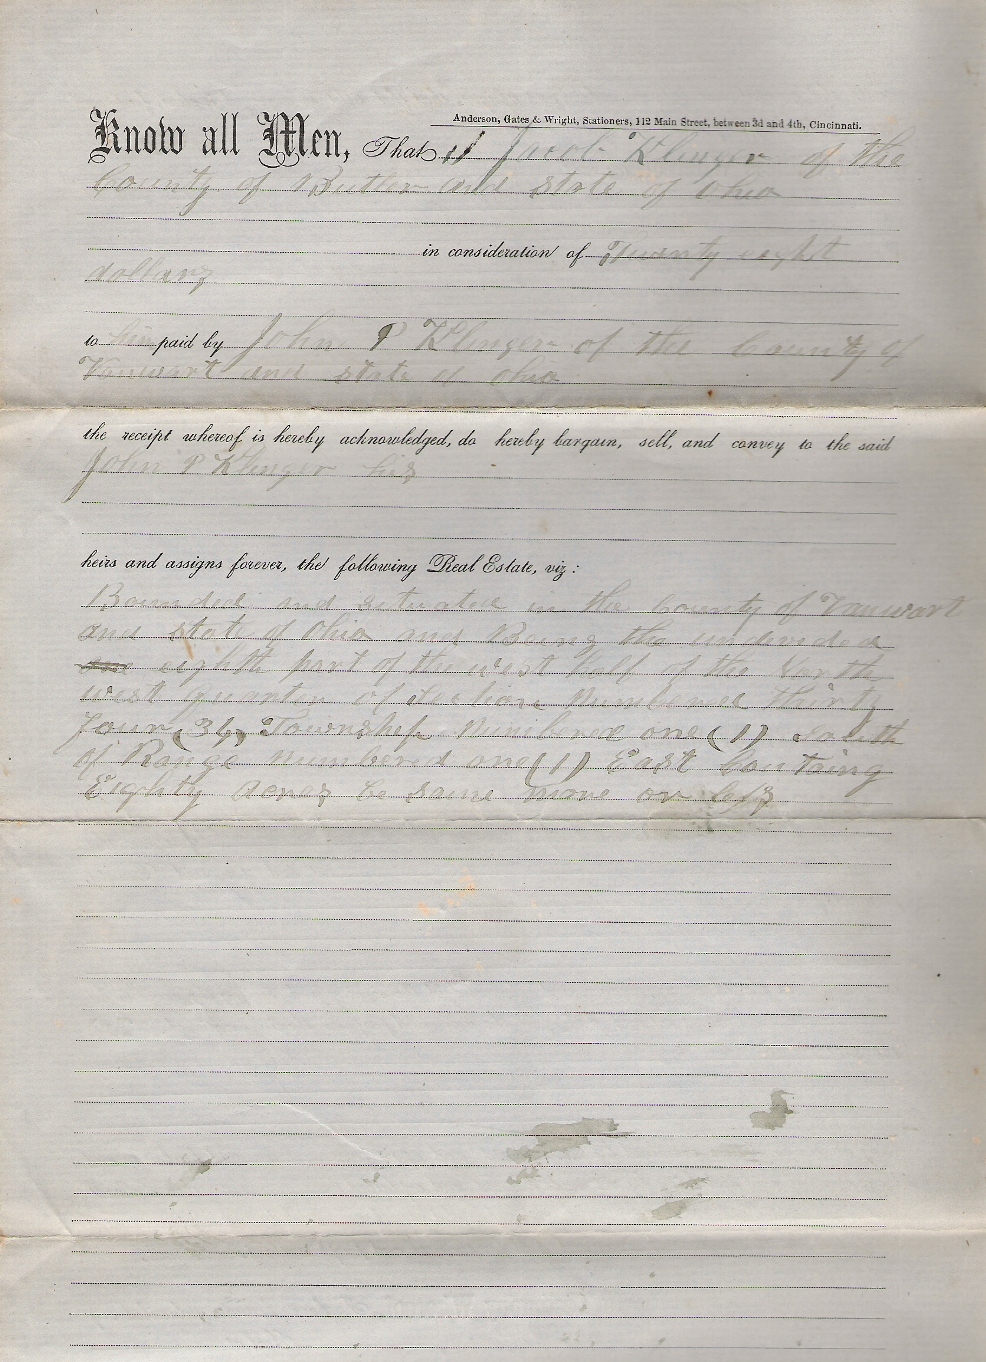 Anderson, Gates & Wright, Stationers, 112 Main Street, between 3d and 4th, Cincinnati.
Know all Men, That I Jacob Klinger of the
County of Butler and state of Ohio
in consideration of Twenty eight
dollars
to him paid by John P Klinger of the County of
Vanwart and state of Ohio
the receipt whereof is hereby acknowledged, do hereby bargain, sell, and convey to the said
John P Klinger his
heirs and assigns forever, the following Real Estate, viz:
Bounded and situated in the County of Vanwart
and state of Ohio and Being the undivided
eighth part of the west half of the North
west quarter of section Numbered Thirty
Four (34) Township Numbered one (1) South
of Range Numbered one (1) East Containg
Eighty acres be same more or less